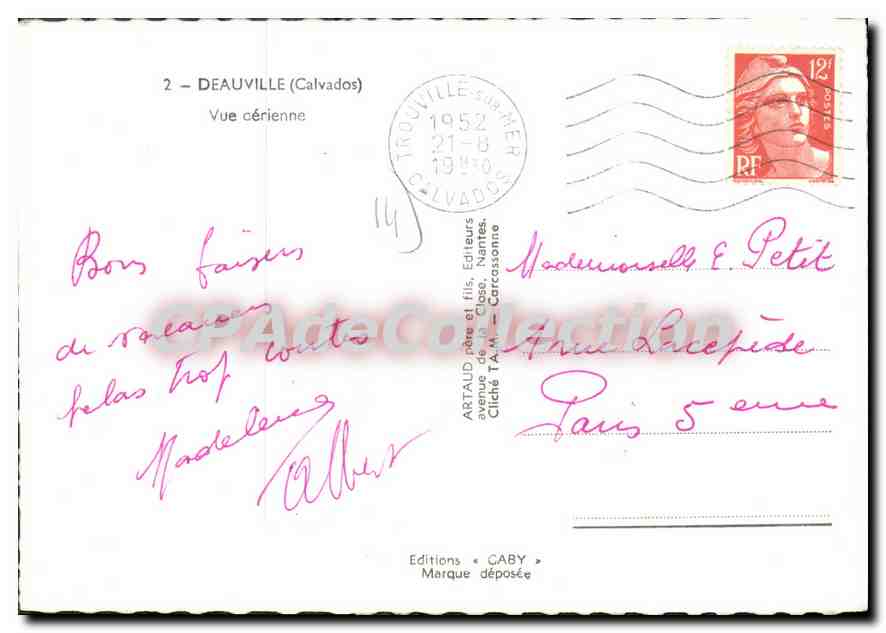 2 – DEAUVILLE (Calvados)
Vue aérienne
TROUVILLE-sur-MER
1952
21-8
CALVADOS
12F
POSTES
RF
14
Bons baisers
de vacances
hélas trop courtes
Madeleine
Albert
ARTAUD père et fils, Editeurs
avenue de la Close, Nantes.
Cliché T.A.M. – Carcassonne
Mademoiselle E. Petit
Lacepède
Paris 5 eme
CPAdeCollection
Editions « GABY »
Marque déposée